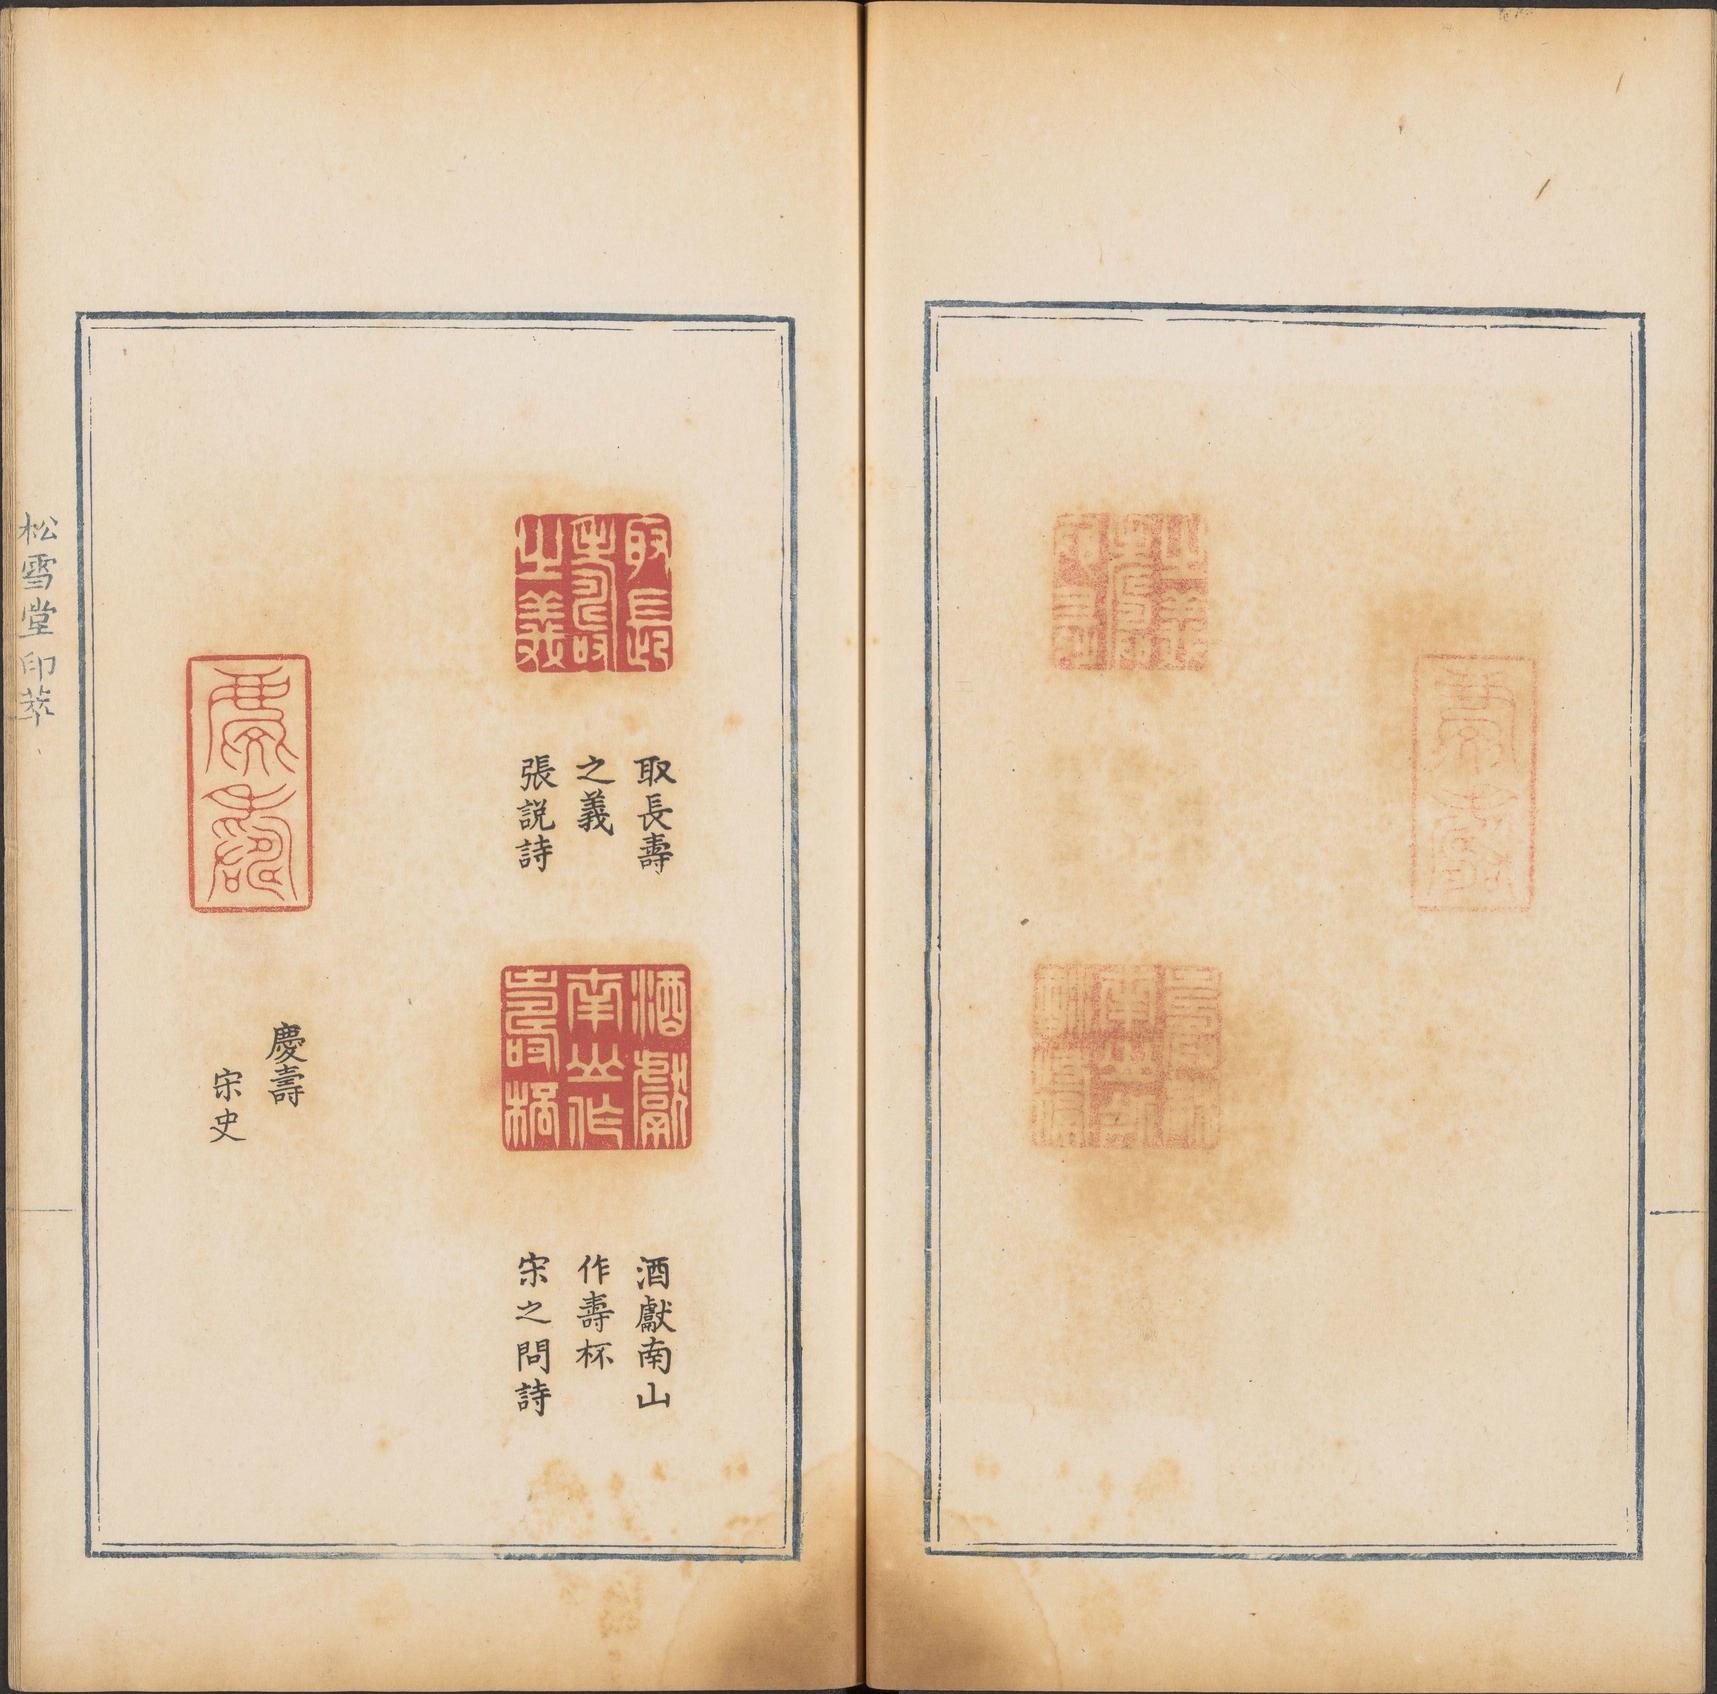 取長壽之義
取長壽
之義
張説詩
酒獻南山作壽桮
酒獻南山
作壽杯
宋之問詩
慶壽
慶壽
宋史
松雪堂印萃